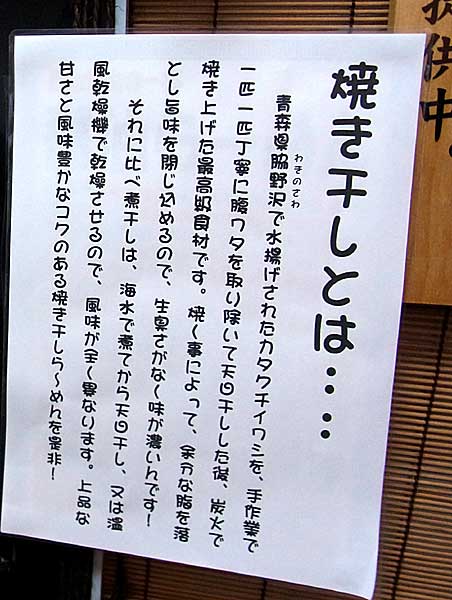 提供中。
焼き干しとは‥‥
青森県脇野沢で水揚げされたカタクチイワシを、手作業で
わきのさわ
一匹一匹丁寧に腹ワタを取り除いて天日干しした後、炭火で
焼き上げた最高級食材です。焼く事によって、余分な脂を落
とし旨味を閉じ込めるので、生臭さがなく味が濃いんです!
それに比べ煮干しは、海水で煮てから天日干し、又は温
風乾燥機で乾燥させるので、風味が全く異なります。上品な
甘さと風味豊かなコクのある焼き干しら〜めんを是非!